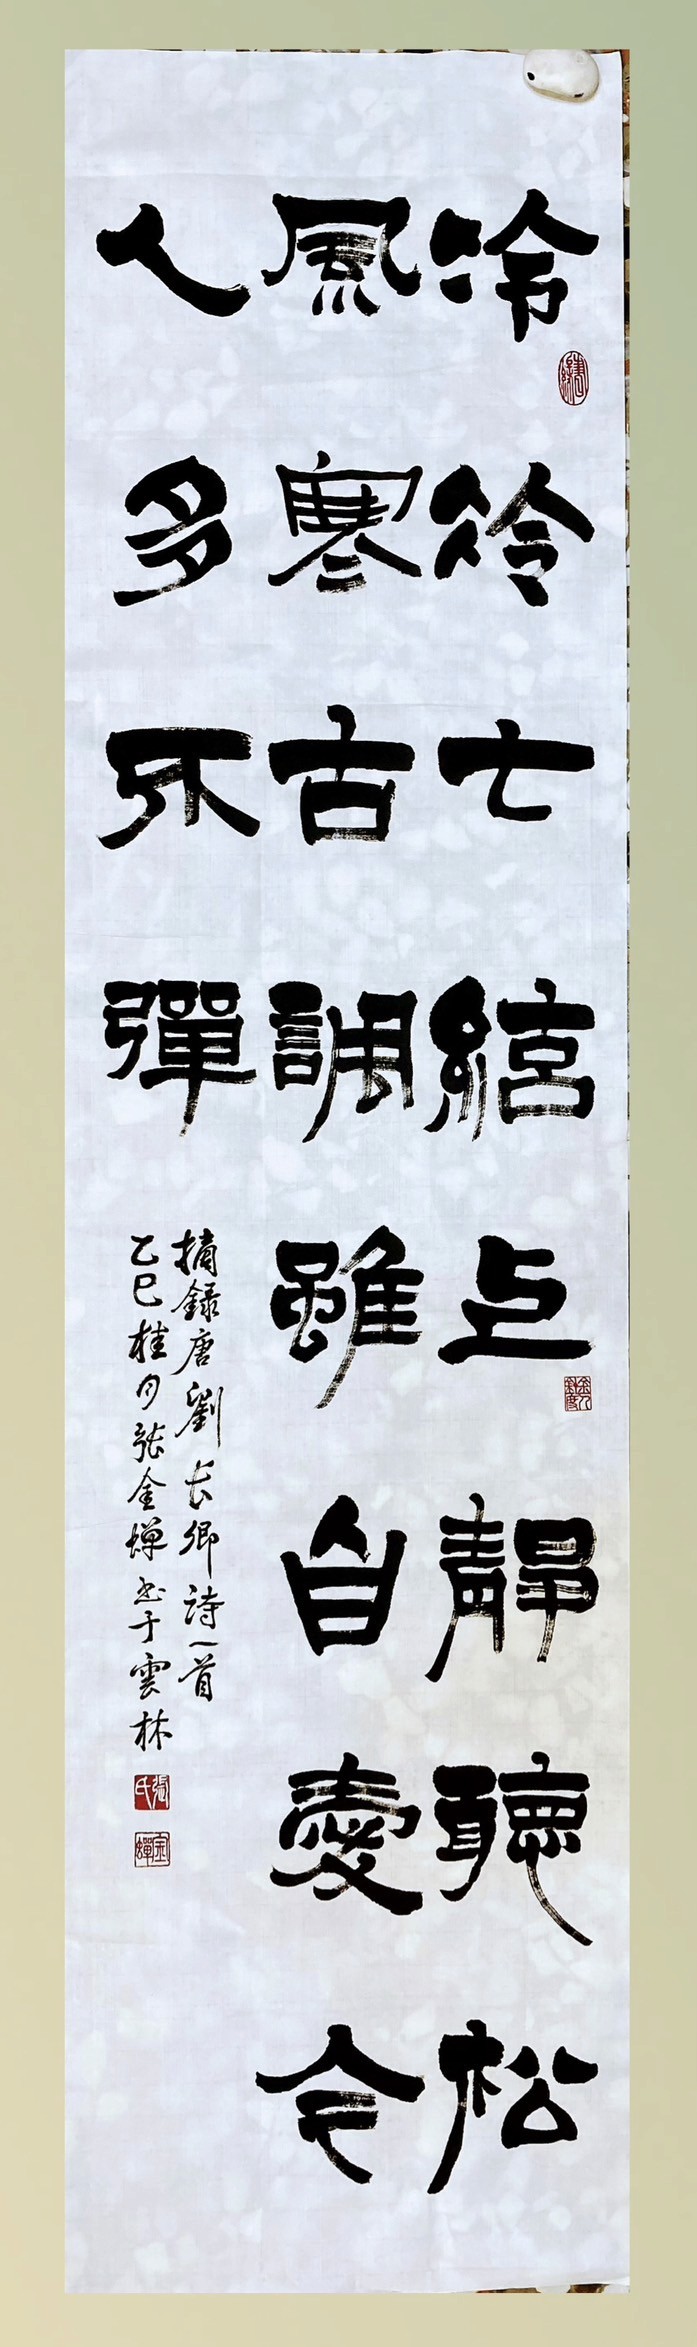 冷冷七絃上靜聽松
風寒古調雖自愛今
人多不彈
摘錄唐劉長卿詩一首
乙巳桂月張金蟬書于雲林
張氏
金蟬